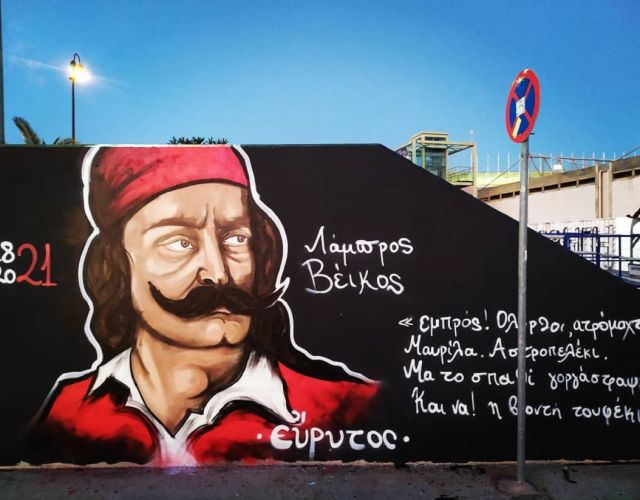 18
20 21
Λάμπρος
Βέικος
« εμπρός! Ολόρθοι, ατρόμαχτ
Μαυρίλα. Αστροπελέκι.
Μα το σπαθί γοργάστραψ
Και να! η βροντή τουφέκι
· εὔρυτος ·